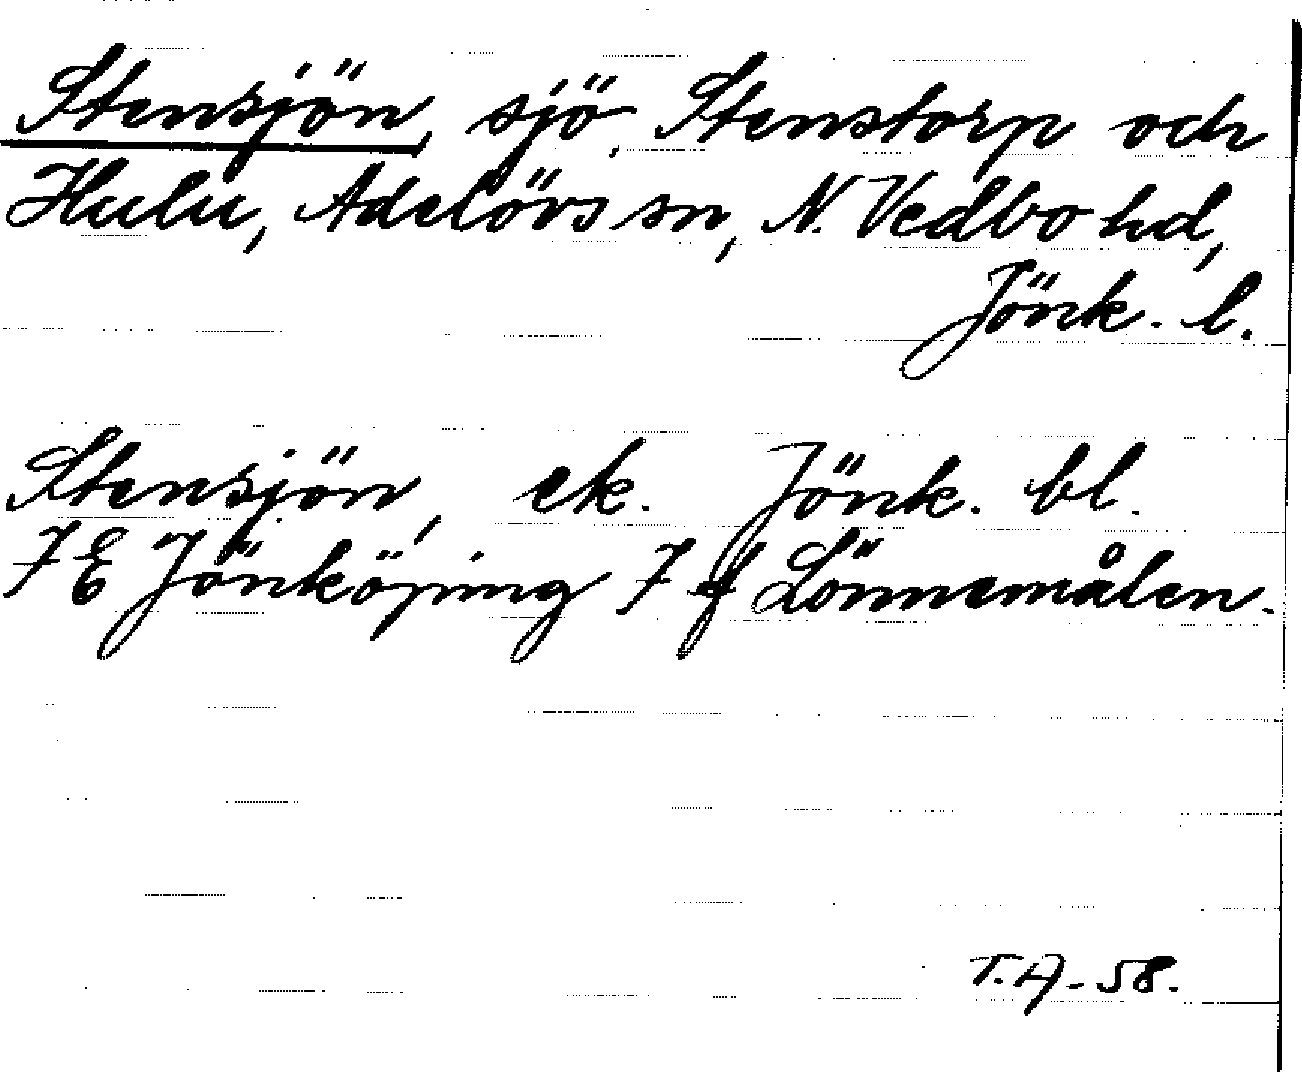 Stensjön, sjö, Stenstorp och
Hulu, Adelövs sn, N. Vedbo hd,
Jönk. l.
Stensjön, ek. Jönk. bl.
7 E Jönköping 7 f Lönnemålen.
T.A-58.